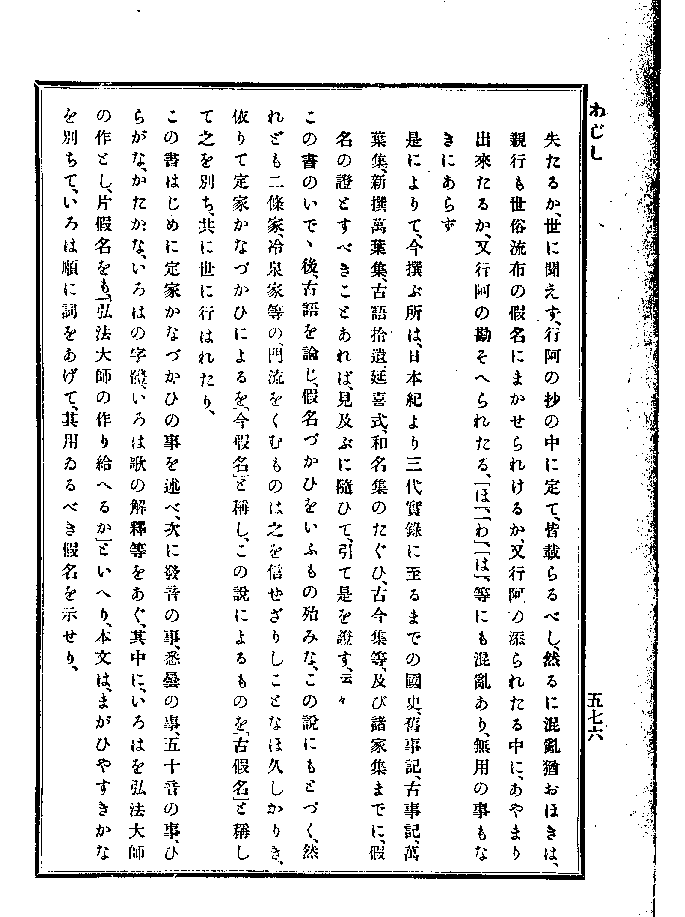 わじし
五七六
失たるか、世に聞えず、行阿の抄の中に定て、皆載らるべし、然るに混亂猶おほきは、
親行も世俗流布の假名にまかせられけるか、又行阿の添られたる中に、あやまり
出來たるか、又行阿の勘そへられたる、「ほ」、「わ」、「は」、等にも混亂あり、無用の事もな
きにあらず
是によりて、今撰ぶ所は、日本紀より三代實錄に至るまでの國史、舊事記、古事記、萬
葉集、新撰萬葉集、古語拾遺、延喜式、和名集のたぐひ、古今集等、及び諸家集までに、假
名の證とすべきことあれば、見及ぶに隨ひて、引て是を證す、云々
この書のいでゝ後、古語を論じ、假名づかひをいふもの殆みな、この說にもとづく、然
れども二條家、冷泉家等の、門流をくむものは之を信せざりしことなほ久しかりき、
依りて定家かなづかひによるを、「今假名」と稱し、この說によるものを、「古假名」と稱し
て之を別ち、共に世に行はれたり、
この書はじめに定家かなづかひの事を述べ、次に發音の事、悉曇の事、五十音の事、ひ
らがな、かたかな、いろはの字體、いろは歌の解釋等をあぐ、其中に、いろはを弘法大師
の作とし、片假名をも、「弘法大師の作り給へるか」といへり、本文は、まがひやすきかな
を別ちて、いろは順に詞をあげて、其用ゐるべき假名を示せり、